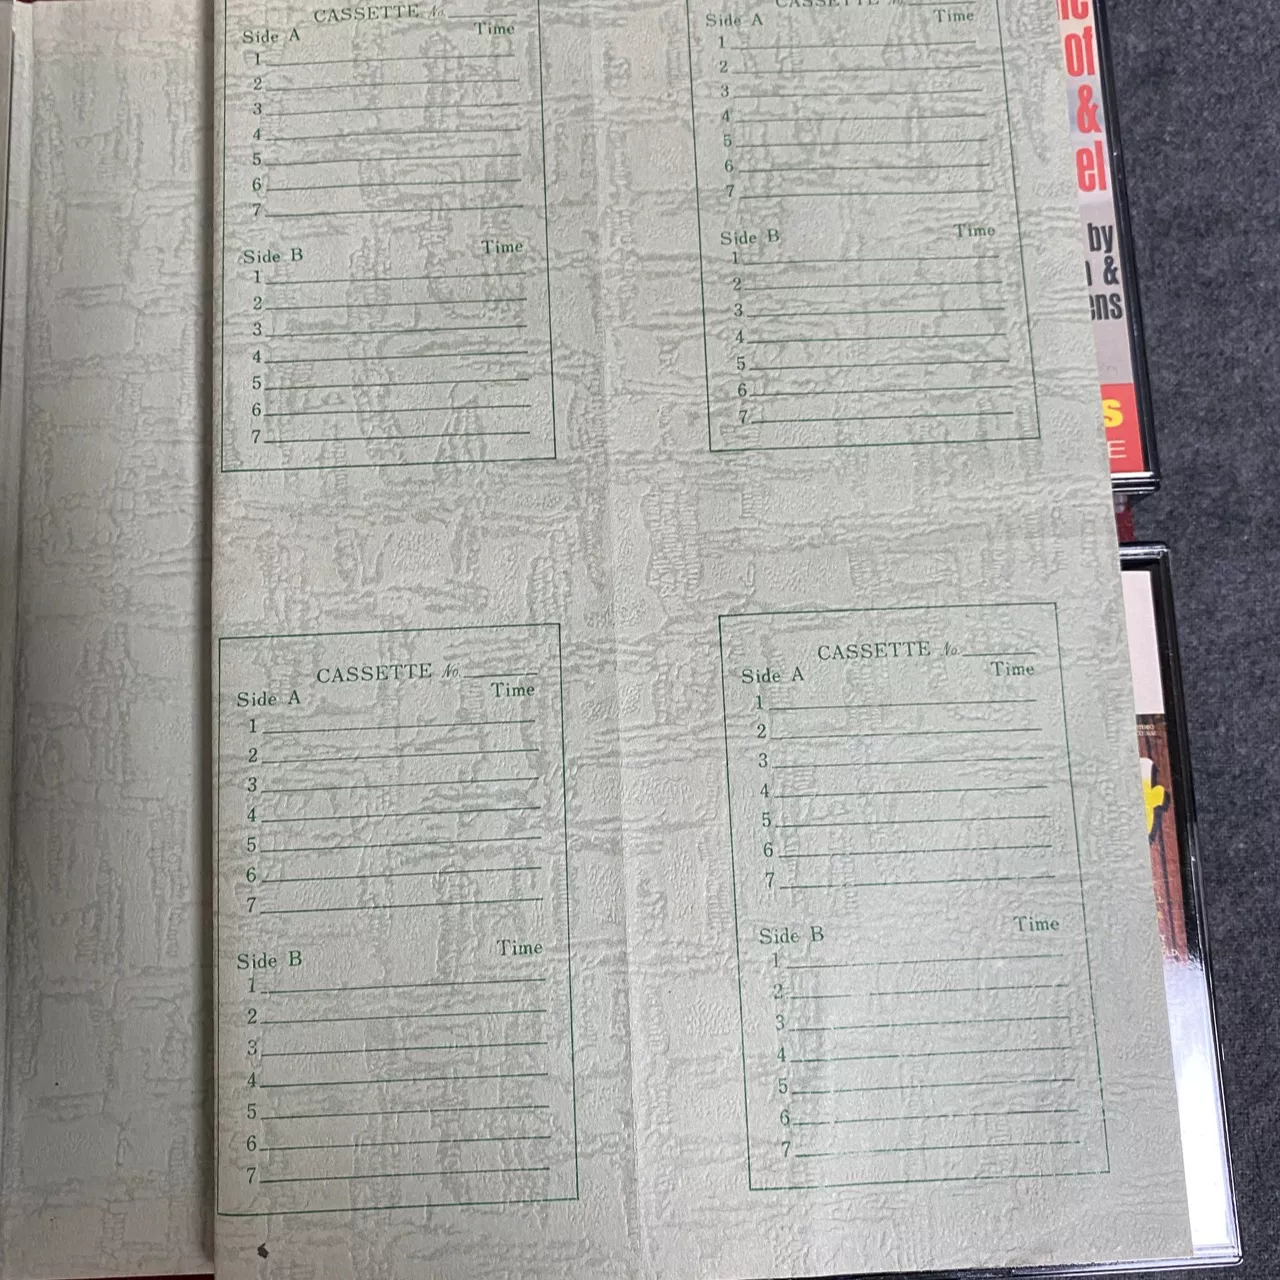 CASSETTE No.
Side A Time
1
2
3
4
5
6
7
Side B Time
1
2
3
4
5
6
7
CASSETTE No.
Side A Time
1
2
3
4
5
6
7
Side B Time
1
2
3
4
5
6
7
CASSETTE No.
Side A Time
1
2
3
4
5
6
7
Side B Time
1
2
3
4
5
6
7
CASSETTE No.
Side A Time
1
2
3
4
5
6
7
Side B Time
1
2
3
4
5
6
7
of
&
el
by
&
ens
S
E